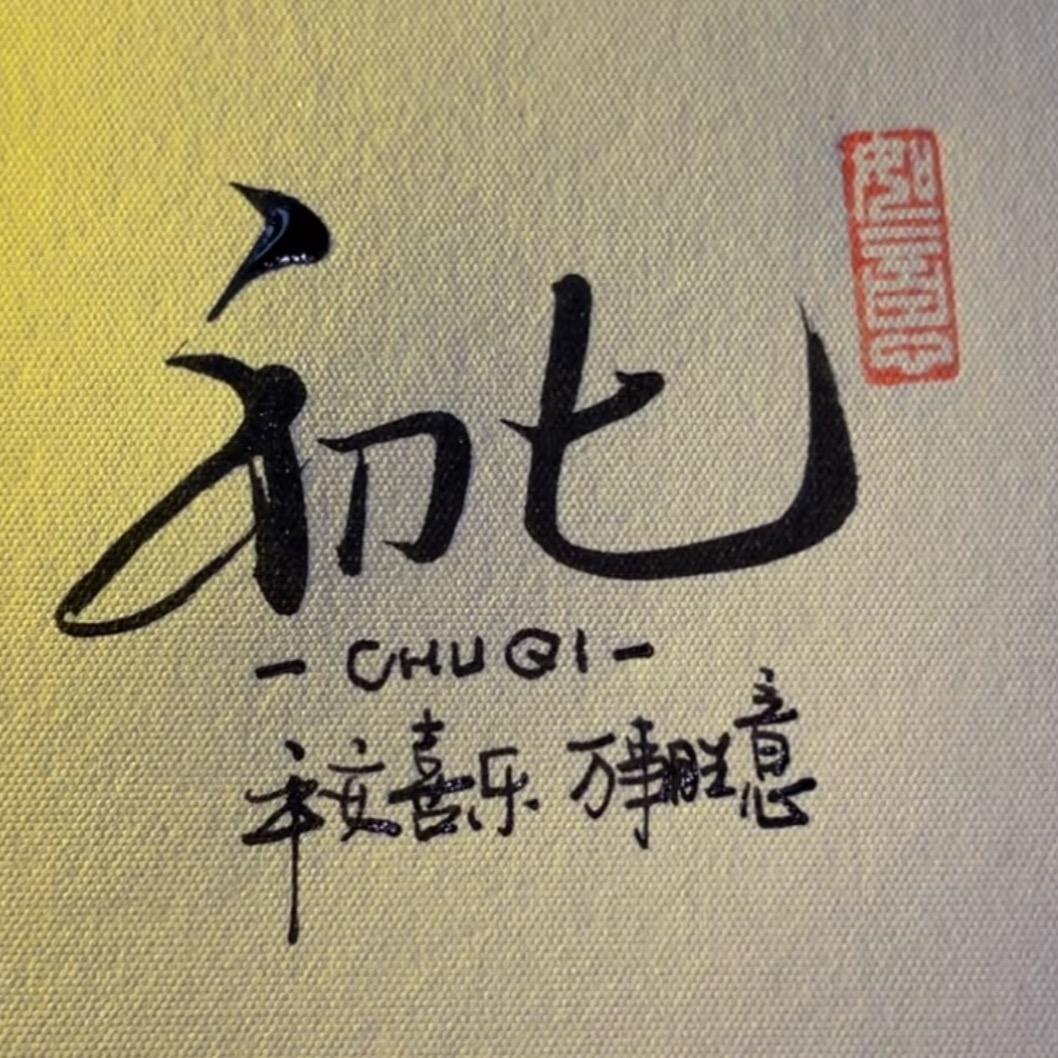 初七
- CHU QI -
平安喜乐 万事胜意